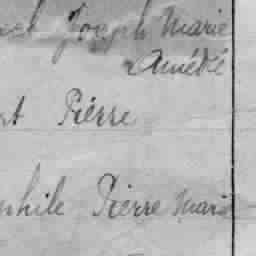 Joseph Marie
Amédée
Pierre
phile Pierre Marie